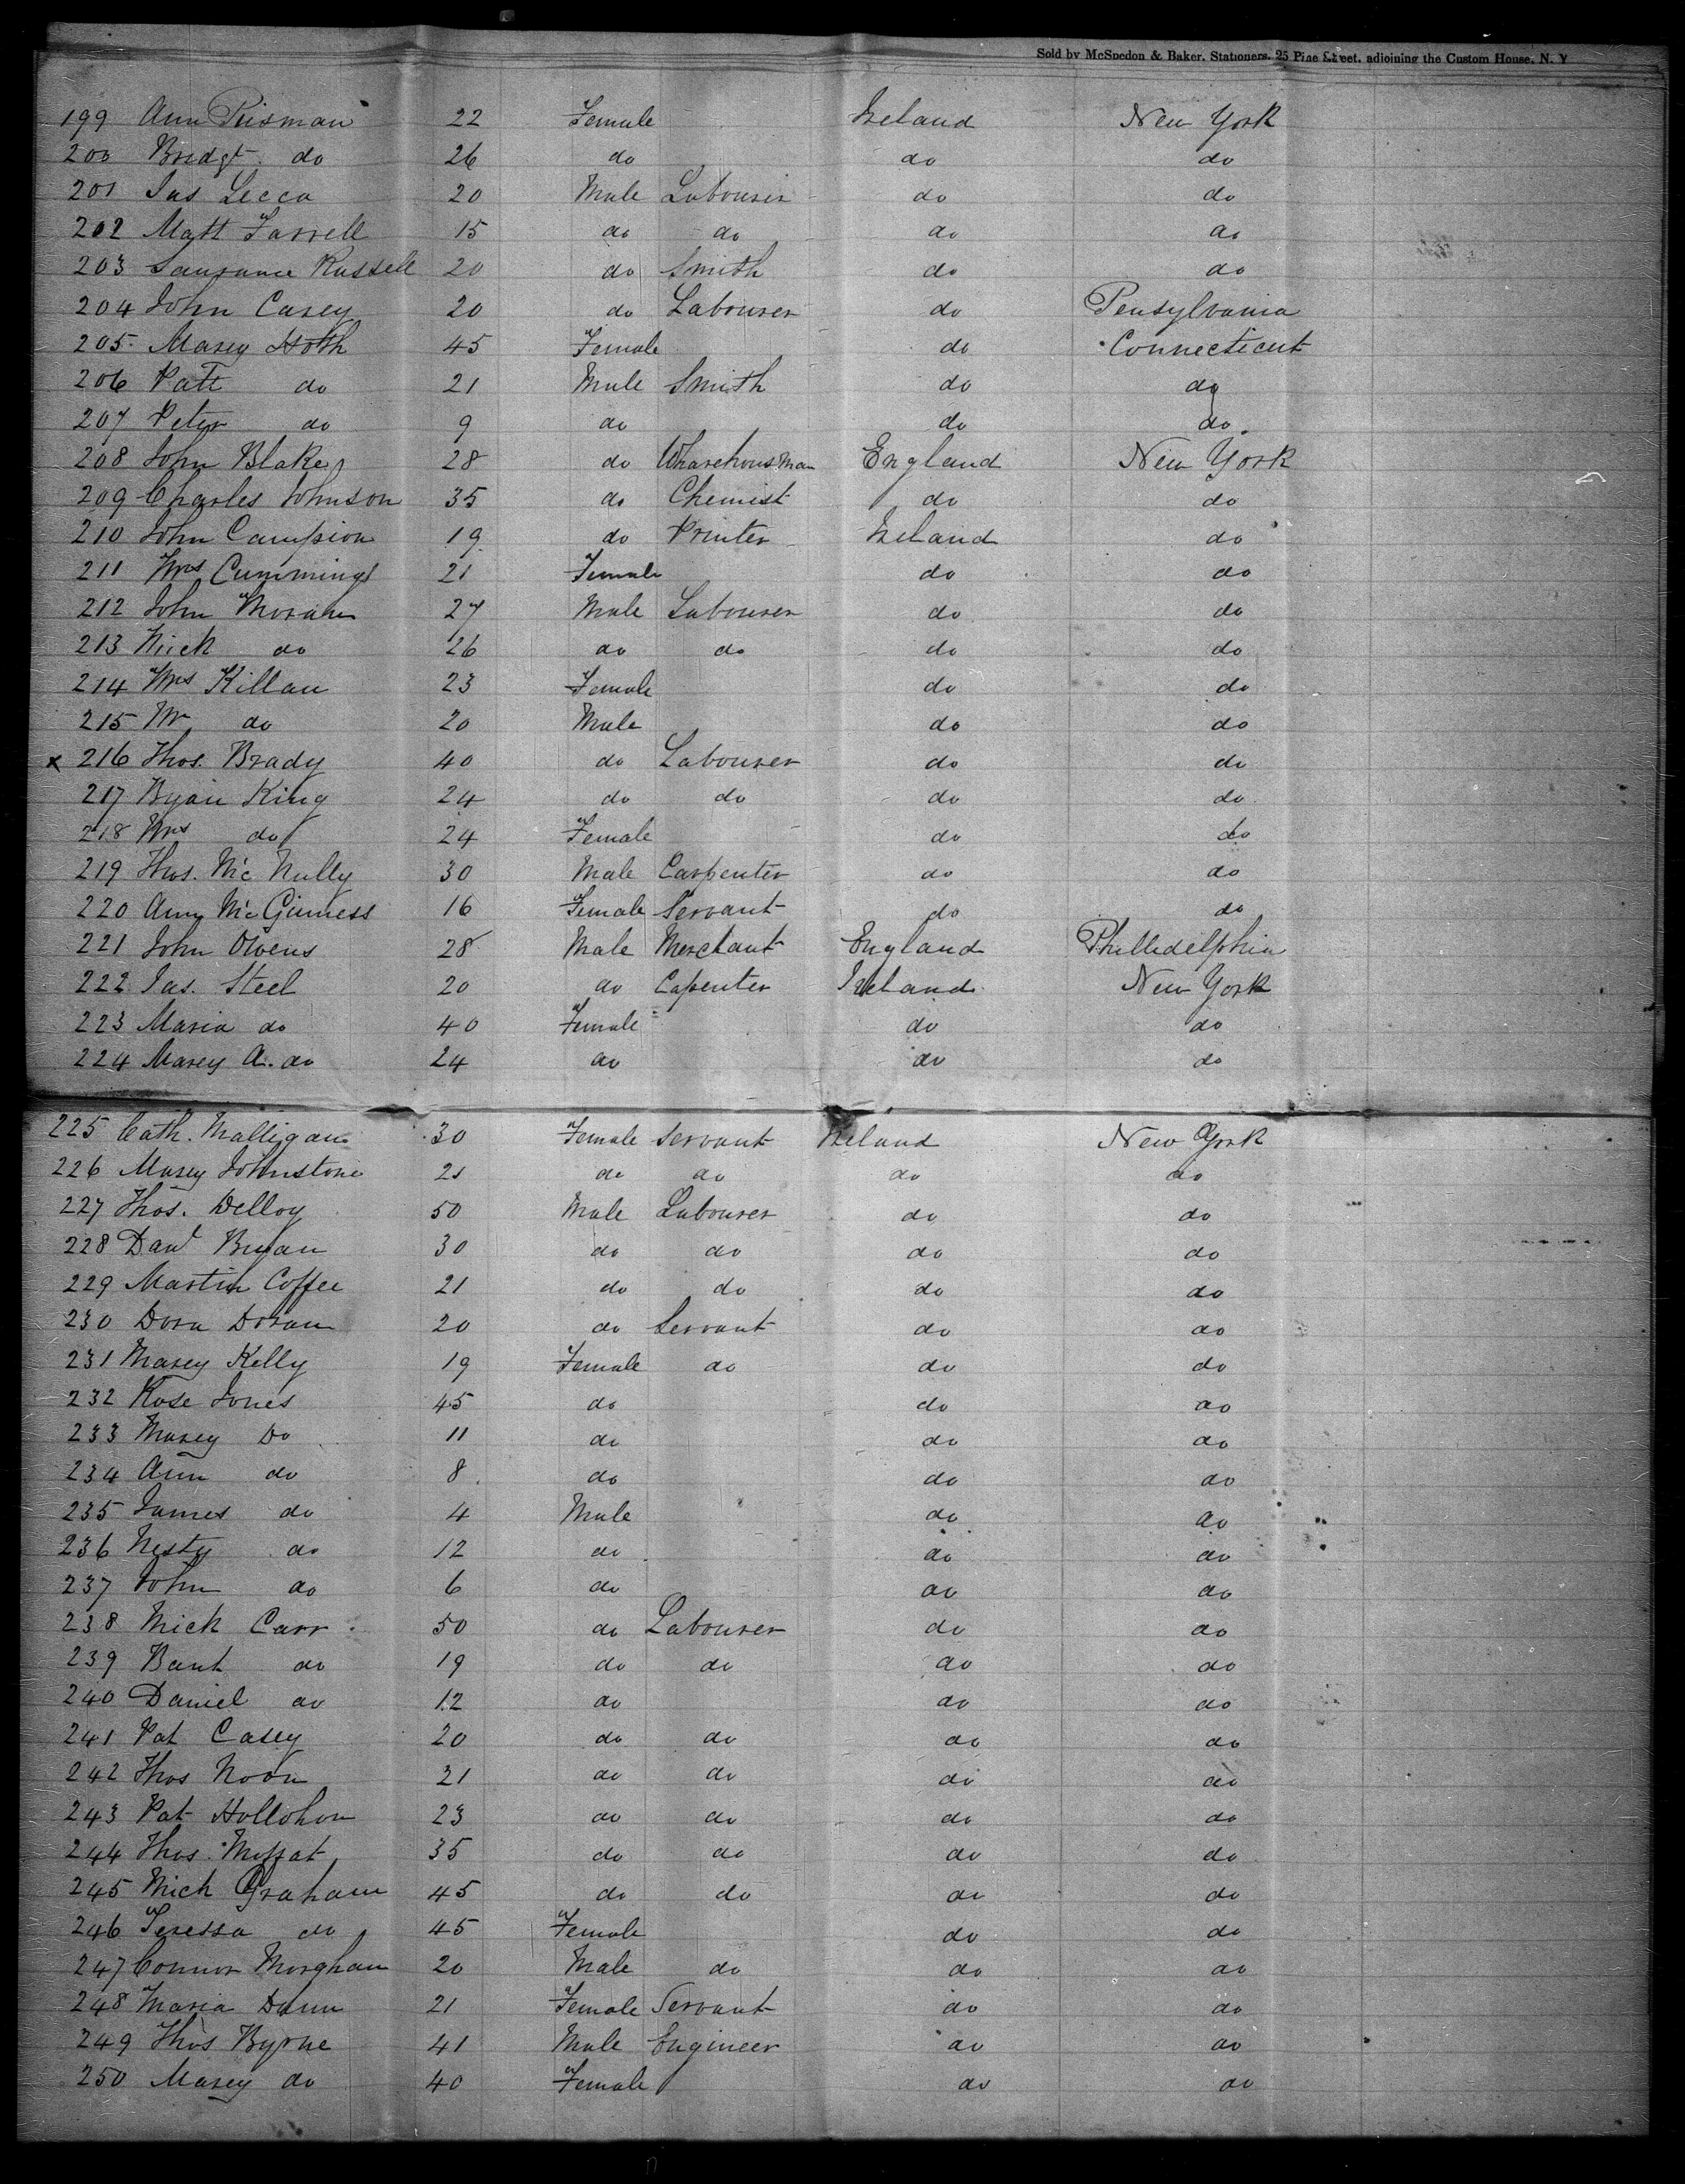 Sold by McSpedon & Baker, Stationers, 25 Pine Street, adjoining the Custom House, N. Y
199 Ann Prisman 22 Female Ireland New York
200 Bridgt. do 26 do do do
201 Jas Lecca 20 Male Labourer do do
202 Matt Farrell 15 do do do do
203 Laurance Russell 20 do Smith do do
204 John Casey 20 do Labourer do Pensylvania
205 Marey Hoth 45 Female do Connecticut
206 Patt do 21 Male Smith do do
207 Peter do 9 do do do
208 John Blake 28 do Wharehousman England New York
209 Charles Johnson 35 do Chemist do do
210 John Campion 19 do Printer Ireland do
211 Mrs Cummings 21 Female do do
212 John Moran 27 Male Labourer do do
213 Mick do 26 do do do do
214 Mrs Killan 23 Female do do
215 Mr do 20 Male do do
x 216 Thos. Brady 40 do Labourer do do
217 Byan King 24 do do do do
218 Mrs do 24 Female do do
219 Thos. Mc Nully 30 Male Carpenter do do
220 Amy McGinness 16 Female Servant do do
221 John Owens 28 Male Merchant England Philledelphia
222 Jas. Steel 20 do Capenter Ireland New York
223 Maria do 40 Female do do
224 Marey A. do 24 do do do
225 Cath. Malligan 30 Female Servant Ireland New York
226 Marey Johnstone 21 do do do do
227 Thos. Delloy 50 Male Labourer do do
228 Danl Bryan 30 do do do do
229 Martin Coffee 21 do do do do
230 Dora Doran 20 do Servant do do
231 Marey Kelly 19 Female do do do
232 Rose Jones 45 do do do
233 Marey Do 11 do do do
234 Ann do 8 do do do
235 James do 4 Male do do
236 Nesty do 12 do do do
237 John do 6 do do do
238 Mick Carr 50 do Labourer do do
239 Bant do 19 do do do do
240 Daniel do 12 do do do
241 Pat Casey 20 do do do do
242 Thos Noon 21 do do do do
243 Pat Hollohon 23 do do do do
244 Thos. Moffat 35 do do do do
245 Mich Graham 45 do do do do
246 Teressa do 45 Female do do
247 Connor Morghan 20 Male do do do
248 Maria Dunn 21 Female Servant do do
249 Thos Byrne 41 Male Engineer do do
250 Marey do 40 Female do do